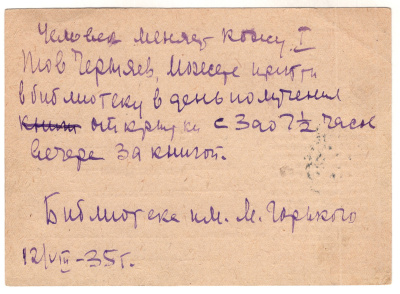 Человек меняет кожу. I
Тов Чертяев, Можете прийти
в библиотеку в день получения
книги открытки с 3 до 7½ часов
вечера за книгой.
Библиотека им. М. Горького
12/VIII-35 г.